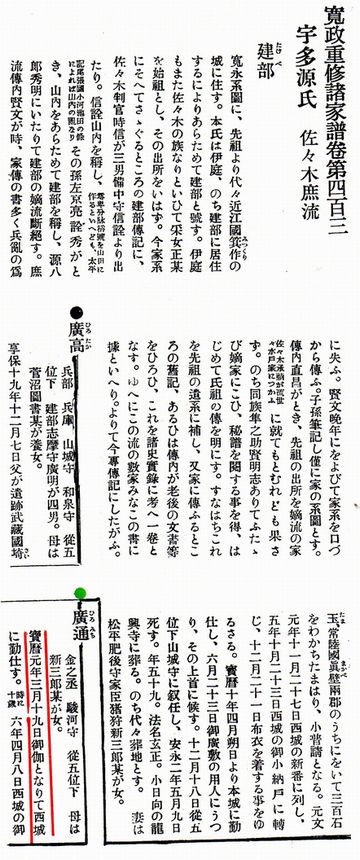 寛政重修諸家譜卷第四百三
宇多源氏 佐々木庶流
建部
たけべ
寛永系圖に、先祖より代々近江國箕作の
みつくり
城に住す。本氏は伊庭、のち建部に居住
するによりあらためて建部と號す。伊庭
もまた佐々木の族なりといひて采女正某
を始祖とし、その出所をいはす。今家系
にそへてさゝぐるところの建部傳記に、
佐々木判官時信が三男備中守信詮より出
たり。信詮山内を稱し、
その孫左京亮詮秀がと
き、山内をあらためて建部を稱し、源八
郎秀明にいたりて建部の嫡流斷絕す。庶
流傳内賢文が時、家傳の書多く兵亂の爲
に失ふ。賢文晩年にをよびて家系を口づ
から傳ふ。子孫筆記し僅に家の系圖とす。
傳内直昌がとき、先祖の出所を嫡流の家
に就てもとむれども果さ
す。のち同族隼之助賢明志ありてふたゝ
び嫡家にこひ、秘譜を閲する事を得、は
じめて氏祖の傳を明にす。すなはちこれ
を先祖の遺系に補し、又家に傳ふるとこ
ろの舊記、あるひは傳内が老後の文書等
をひろひ、これを諸史實錄に考へ一卷と
なす。ゆへにこの流の數家みなこの書に
據といへり。よりて今專傳記にしたがふ。
廣高
ひろたか
兵部 兵庫 山城守 和泉守 從五
位下 建部志摩守廣明が四男。母は
菅沼圖書某が養女。
享保十九年十二月七日父が遺跡武藏國埼
玉、常陸國眞壁兩郡のうちにをいて三百石
をわかちたまはり、小普請となる。元文
元年十一月二十七日西城の新番に列し、
五年十月二十三日西城の御小納戸に轉
じ、十二月二十一日布衣を着する事をゆ
るさる。寶曆十年四月朔日より本城に勤
仕し、六月二十三日御廣敷の用人にうつ
り、その上首に候す。十二月十八日從五
位下山城守に叙任し、安永二年五月九日
死す。年五十九。法名玄正。小日向の龍
興寺に葬る。のち代々葬地とす。 妻は
松平肥後守家臣猪狩新三郎某が女。
廣通
ひろみち
金之丞 駿河守 從五位下 母は
新三郎某が女。
寶曆元年三月十九日御伽となりて西城
に勤仕す。時に十歳 六年四月八日西城の御